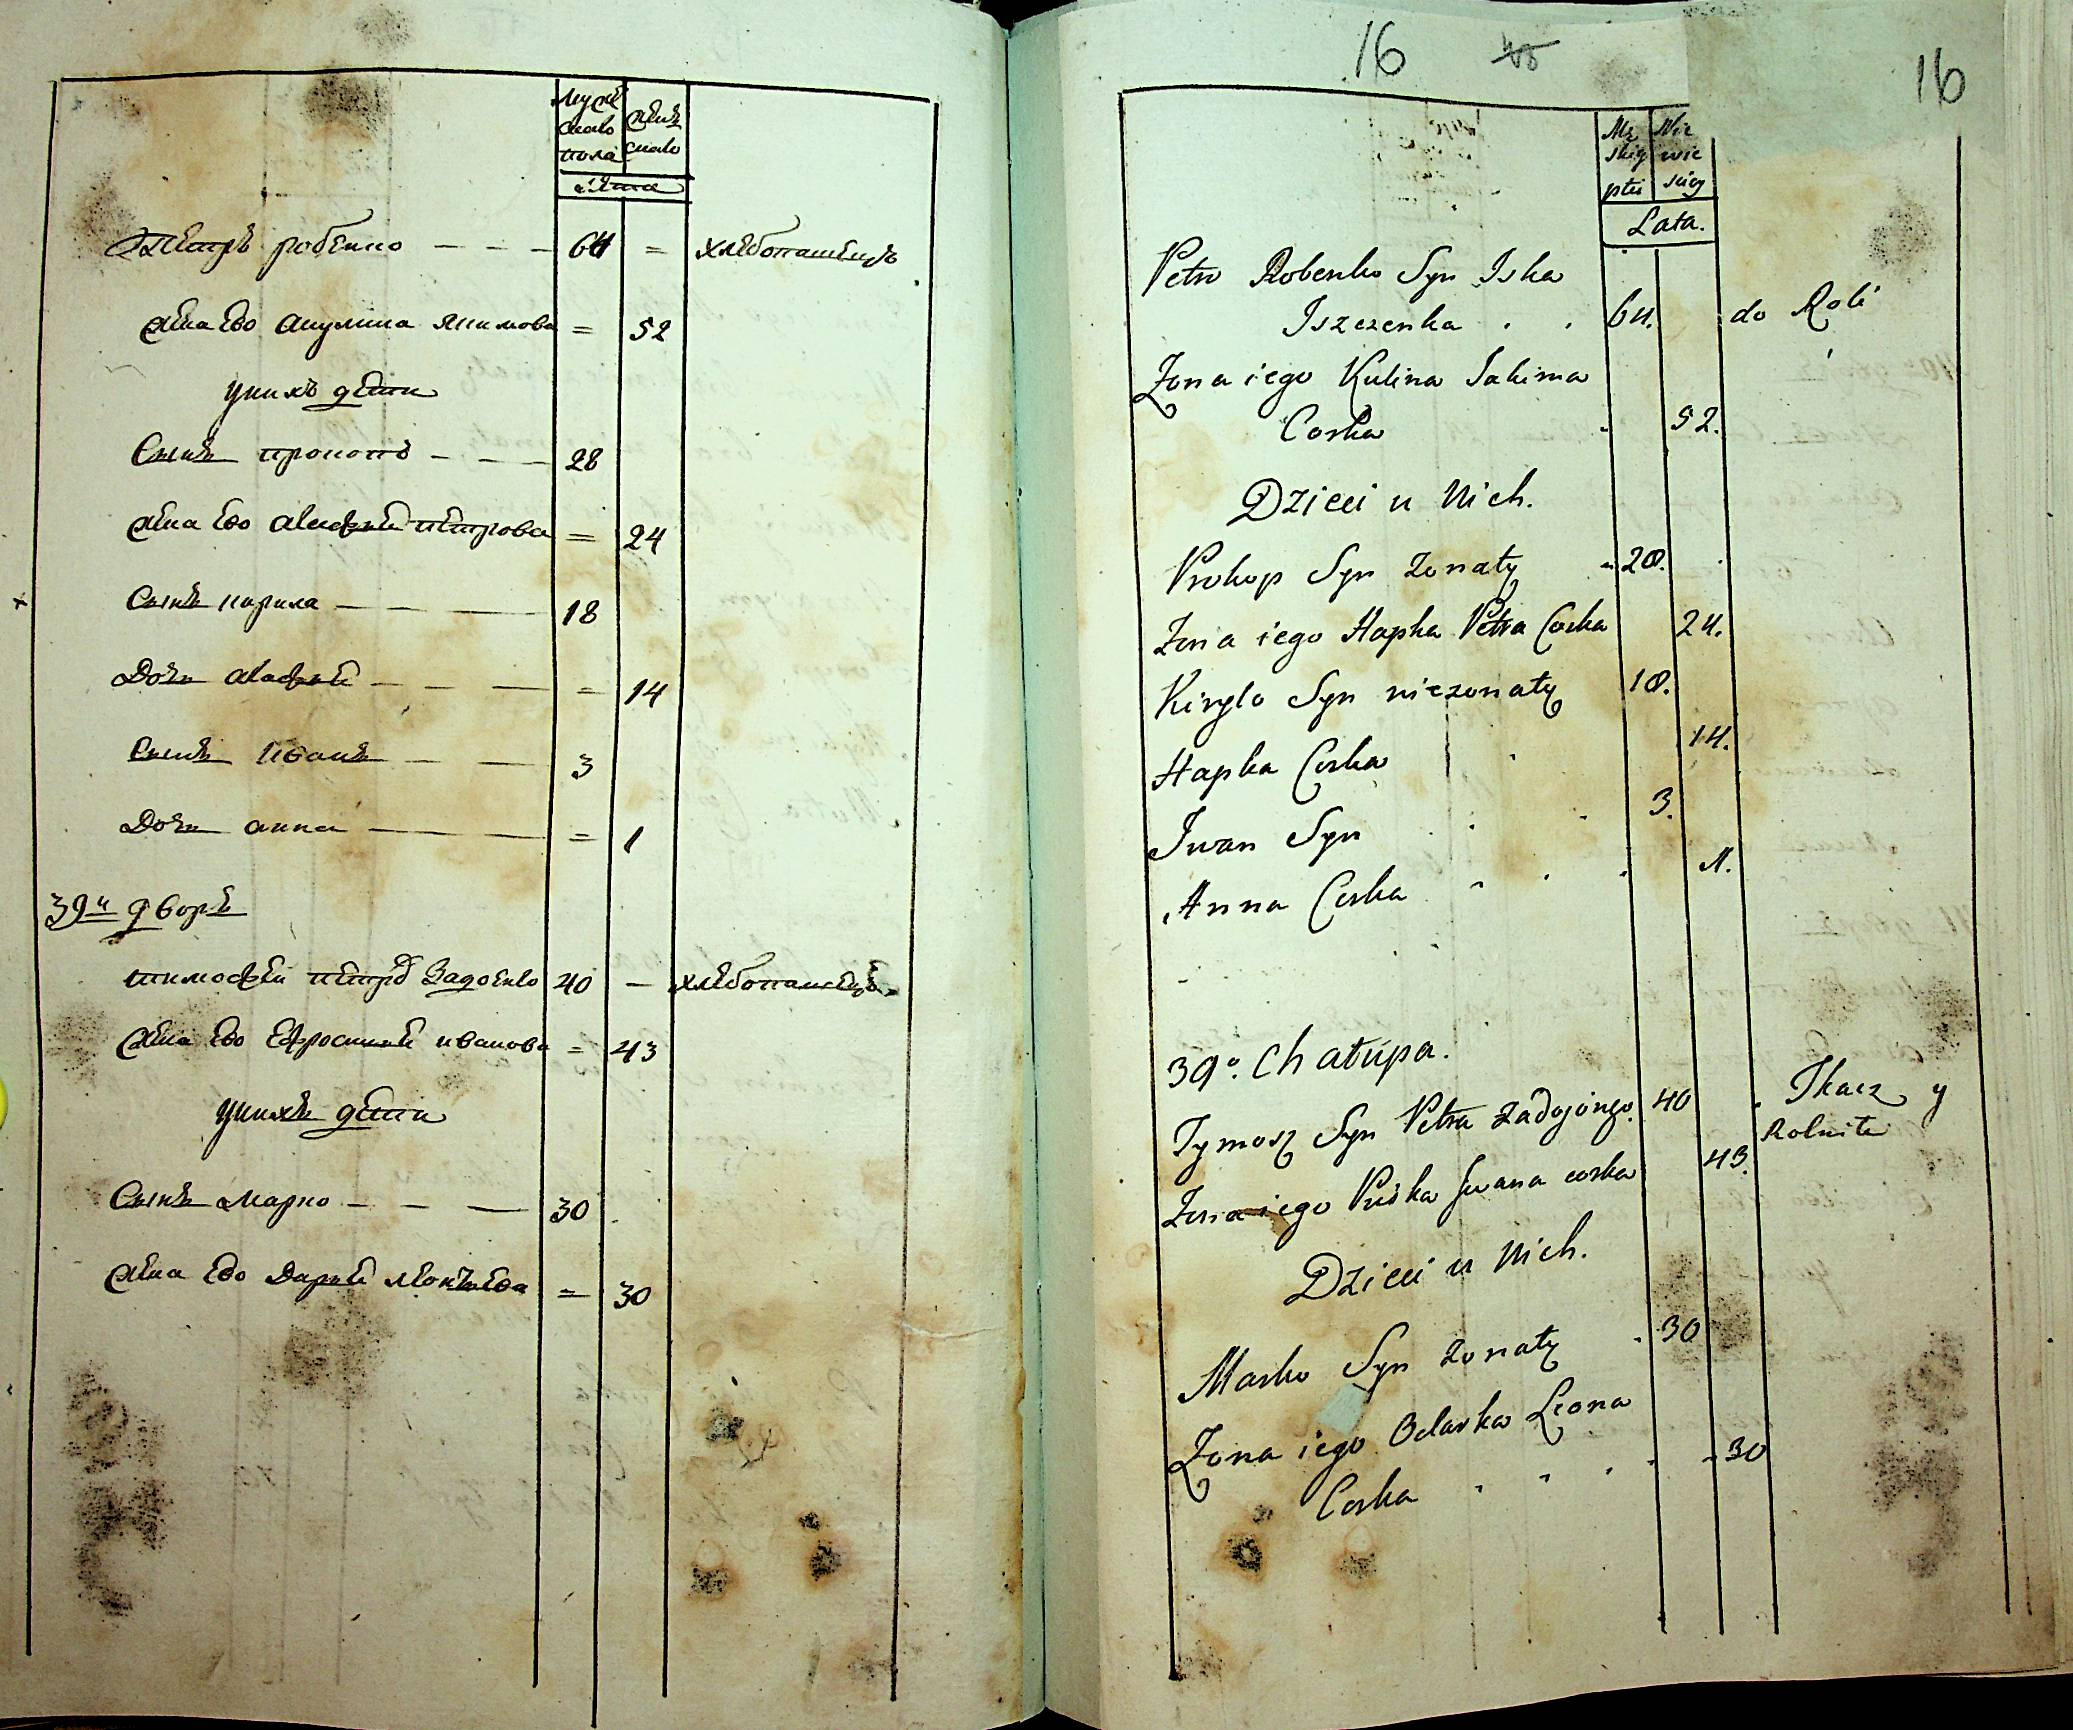 Мужеска пола
женска
лѣта
Петръ робенко — — — 64 = хлебопашецъ
жена ево акулина якимова = 52
у нихъ дети
Сынъ прокопъ — — — 28
жена ево агафия петрова = 24
Сынъ кирила — — — 18
Дочь агафия — — — = 14
Сынъ Иванъ — — — 3
Дочь анна — — = 1
39й дворъ
тимофей петровъ Задоенко 40 — хлебопашецъ
жена ево Ефросиния иванова = 43
у нихъ дети
Сынъ марко — — — 30
жена ево Дария леонтиева = 30
16 16
Mę
skiy
płci
Nie
wie
sciey
Lata.
Petro Robenko Syn Iska
Iszczenka . . 64. do Roli
Żona iego Kulina Jakima
Corka 52.
Dzieci u Nich.
Prokop Syn żonaty 28.
Żona iego Hapka Petra Corka 24.
Kiryło Syn nieżonaty 18.
Hapka Corka 14.
Iwan Syn 3.
Anna Corka 1.
39o. Chałupa.
Tymosz Syn Petra Zadojongo. 40 Tkacz y
Rolnik
Żona iego Pryśka Iwana corka 43.
Dzieci u Nich.
Marko Syn żonaty 30
Żona iego Odarka Leona
Corka 30